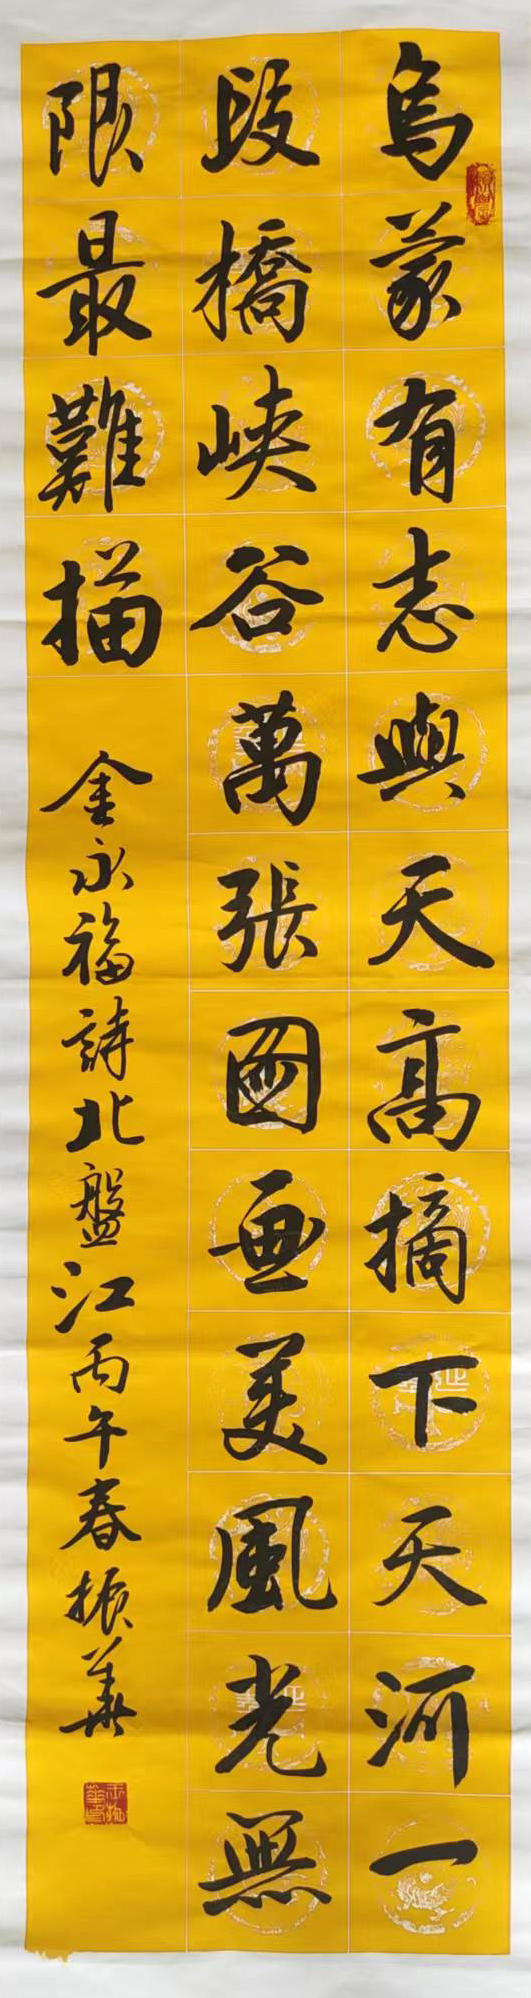 烏蒙有志與天高摘下天河一
段橋峽谷萬張國画美風光無
限最難描
金永福詩北盤江丙午春振華